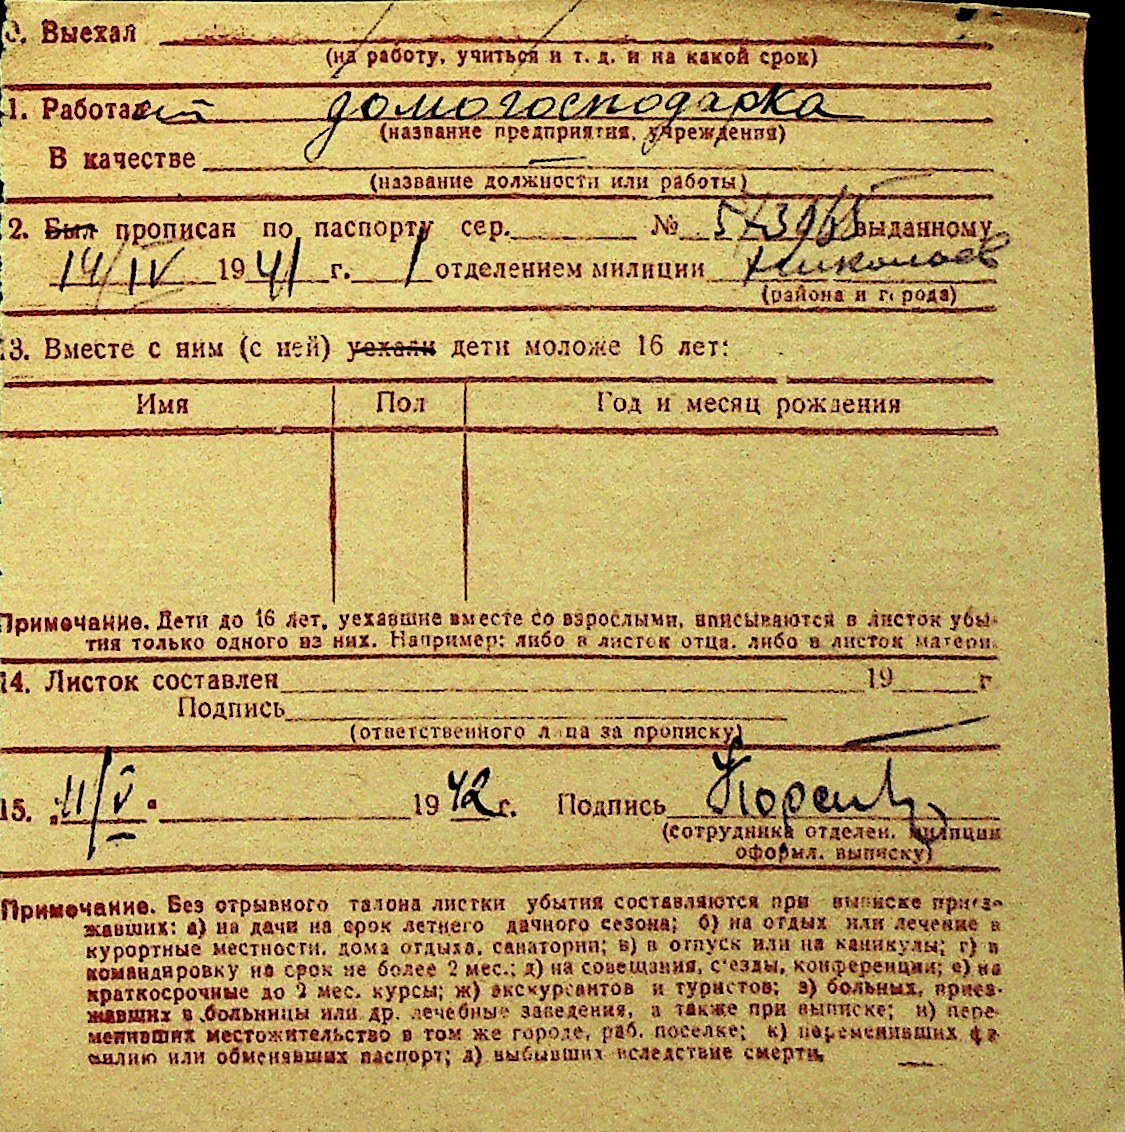 0. Выехал
(на работу, учиться и т. д. и на какой срок)
1. Работает домогосподарка
(название предприятия, учреждения)
В качестве —
(название должности или работы)
2. Был прописан по паспорту сер. № выданному
14/IV 1941 г. 1 отделением милиции Николаев
(района и города)
13. Вместе с ним (с ней) уехали дети моложе 16 лет:
Имя Пол Год и месяц рождения
Примечание. Дети до 16 лет, уехавшие вместе со взрослыми, вписываются в листок убы-
тия только одного из них. Например: либо в листок отца, либо в листок матери.
14. Листок составлен 19 г
Подпись
(ответственного лица за прописку)
15. „11/V" 1942 г. Подпись
(сотрудника отделен. милиции
оформл. выписку)
Примечание. Без отрывного талона листки убытия составляются при выписке приез-
жавших: а) на дачи на срок летнего дачного сезона; б) на отдых или лечение в
курортные местности, дома отдыха, санатории; в) в отпуск или на каникулы; г) в
командировку на срок не более 2 мес.; д) на совещания, с'езды, конференции; е) на
краткосрочные до 2 мес. курсы; ж) экскурсантов и туристов; з) больных, приез-
жавших в больницы или др. лечебные заведения, а также при выписке; и) пере-
менивших местожительство в том же городе, раб. поселке; к) переменивших фа-
милию или обменявших паспорт; л) выбывших вследствие смерти.